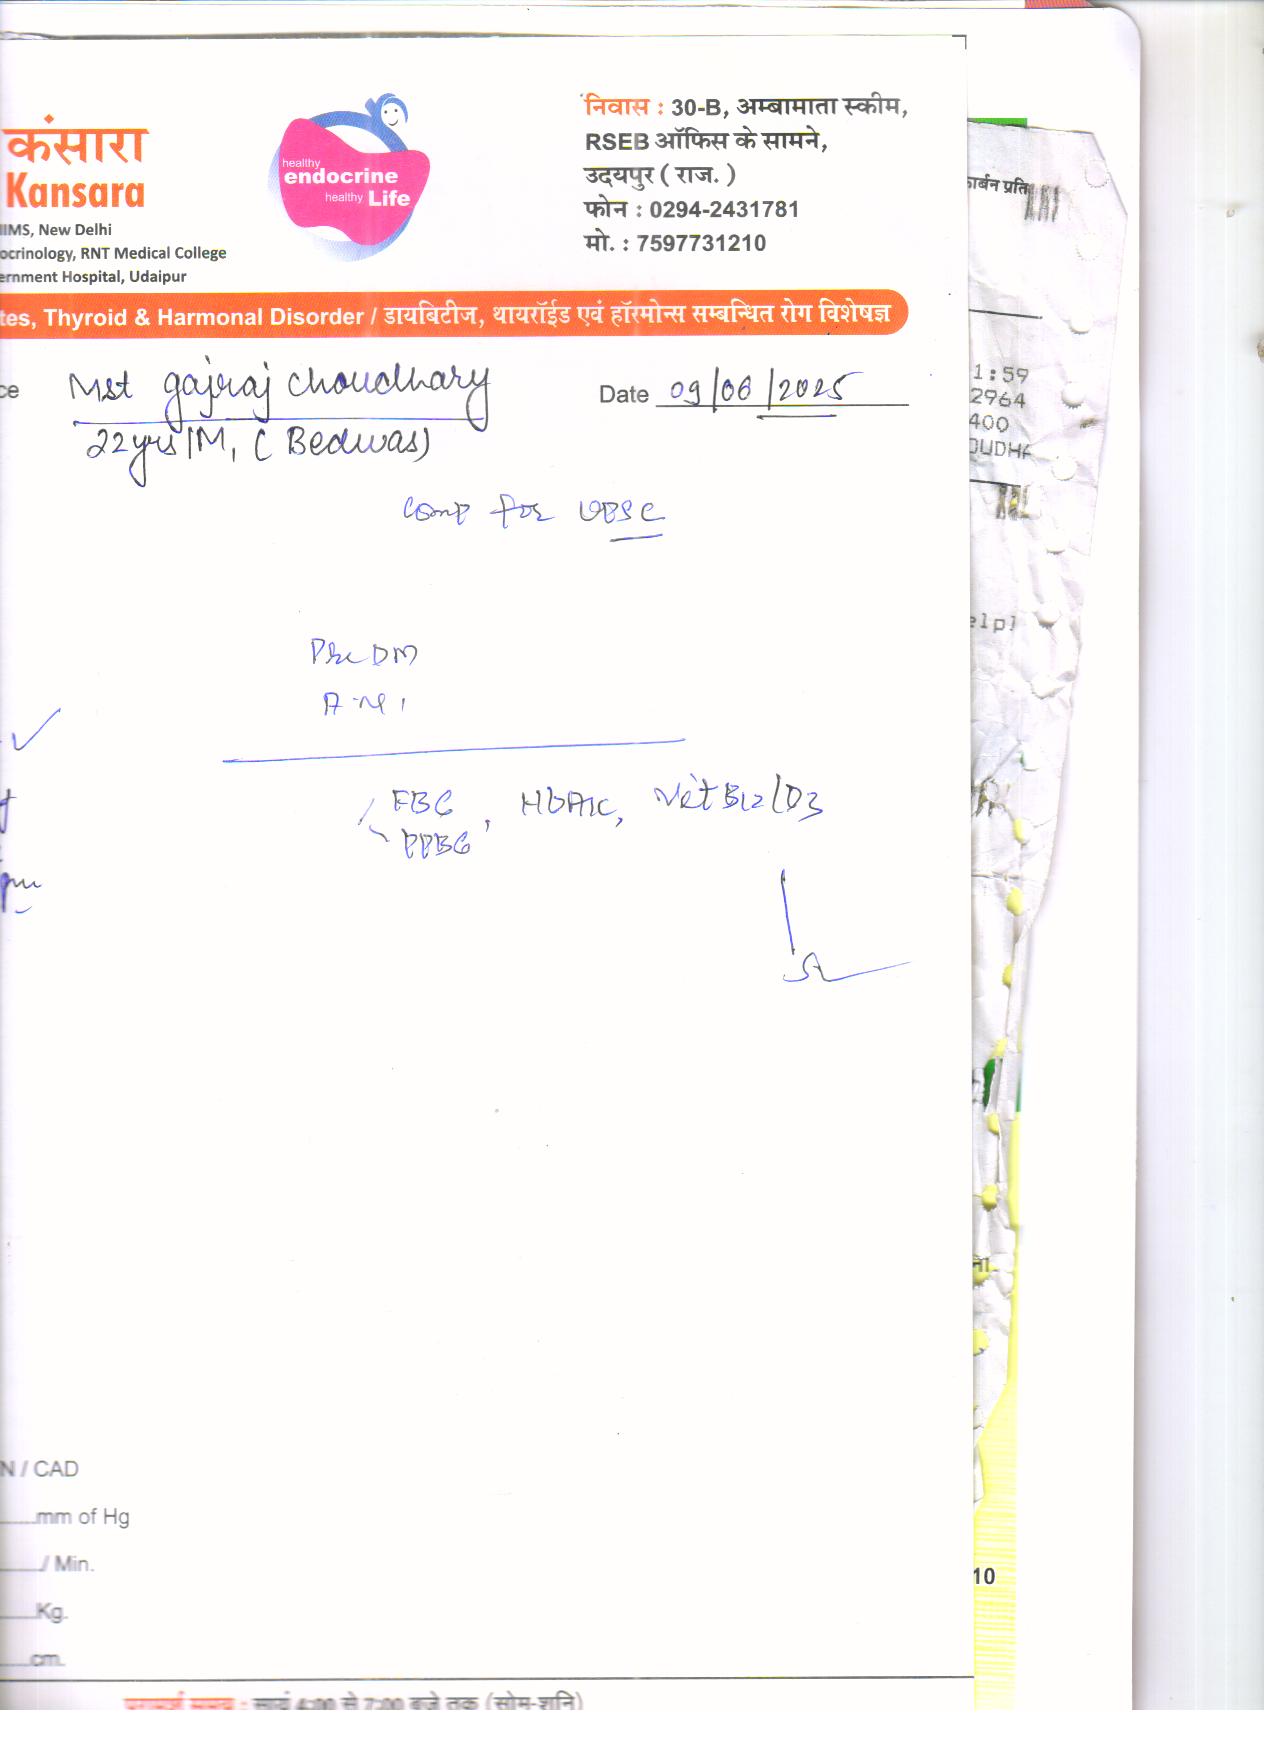 कंसारा
Kansara
IIMS, New Delhi
ocrinology, RNT Medical College
ernment Hospital, Udaipur
healthy
endocrine
healthy Life
निवास : 30-B, अम्बामाता स्कीम,
RSEB ऑफिस के सामने,
उदयपुर ( राज. )
फोन : 0294-2431781
मो. : 7597731210
tes, Thyroid & Harmonal Disorder / डायबिटीज, थायरॉईड एवं हॉरमोन्स सम्बन्धित रोग विशेषज्ञ
ce Mst gajraj choudhary Date 09/06/2025
22yrs/M, (Bedwas)
Comp for UPSC
Pre DM
FBG, HbA1c, Vit B12/D3
PPBG
N / CAD
mm of Hg
/ Min.
Kg.
cm.
परामर्श समय : सायं 4:00 से 7:00 बजे तक (सोम-शनि)
कार्बन प्रति
1:59
2964
400
OUDHA
elp!
10